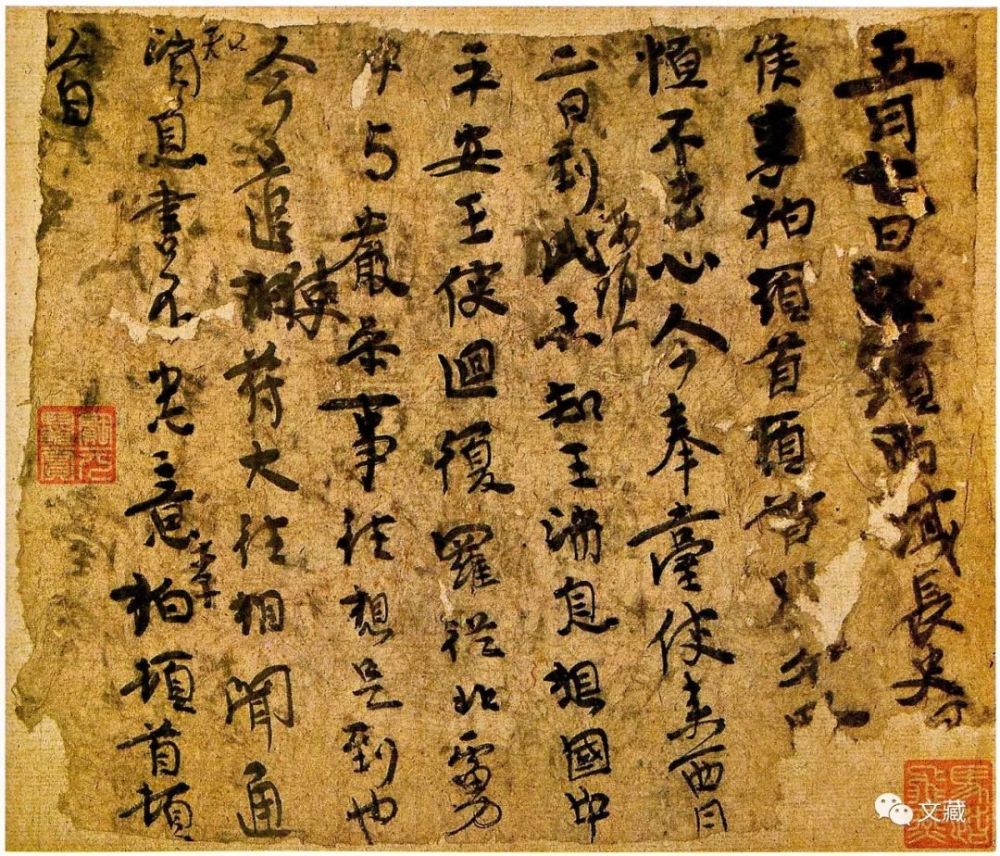 五月七日海頭西域長史
侯李柏頓首頓首
恒不去心今奉臺使來西月
二日到此海頭未知王消息想國中
平安王使迴復羅從北虜
中与嚴參事往想是到也
今遣使苻大往相聞通
知消息書不悉意李柏頓首頓
首
文藏